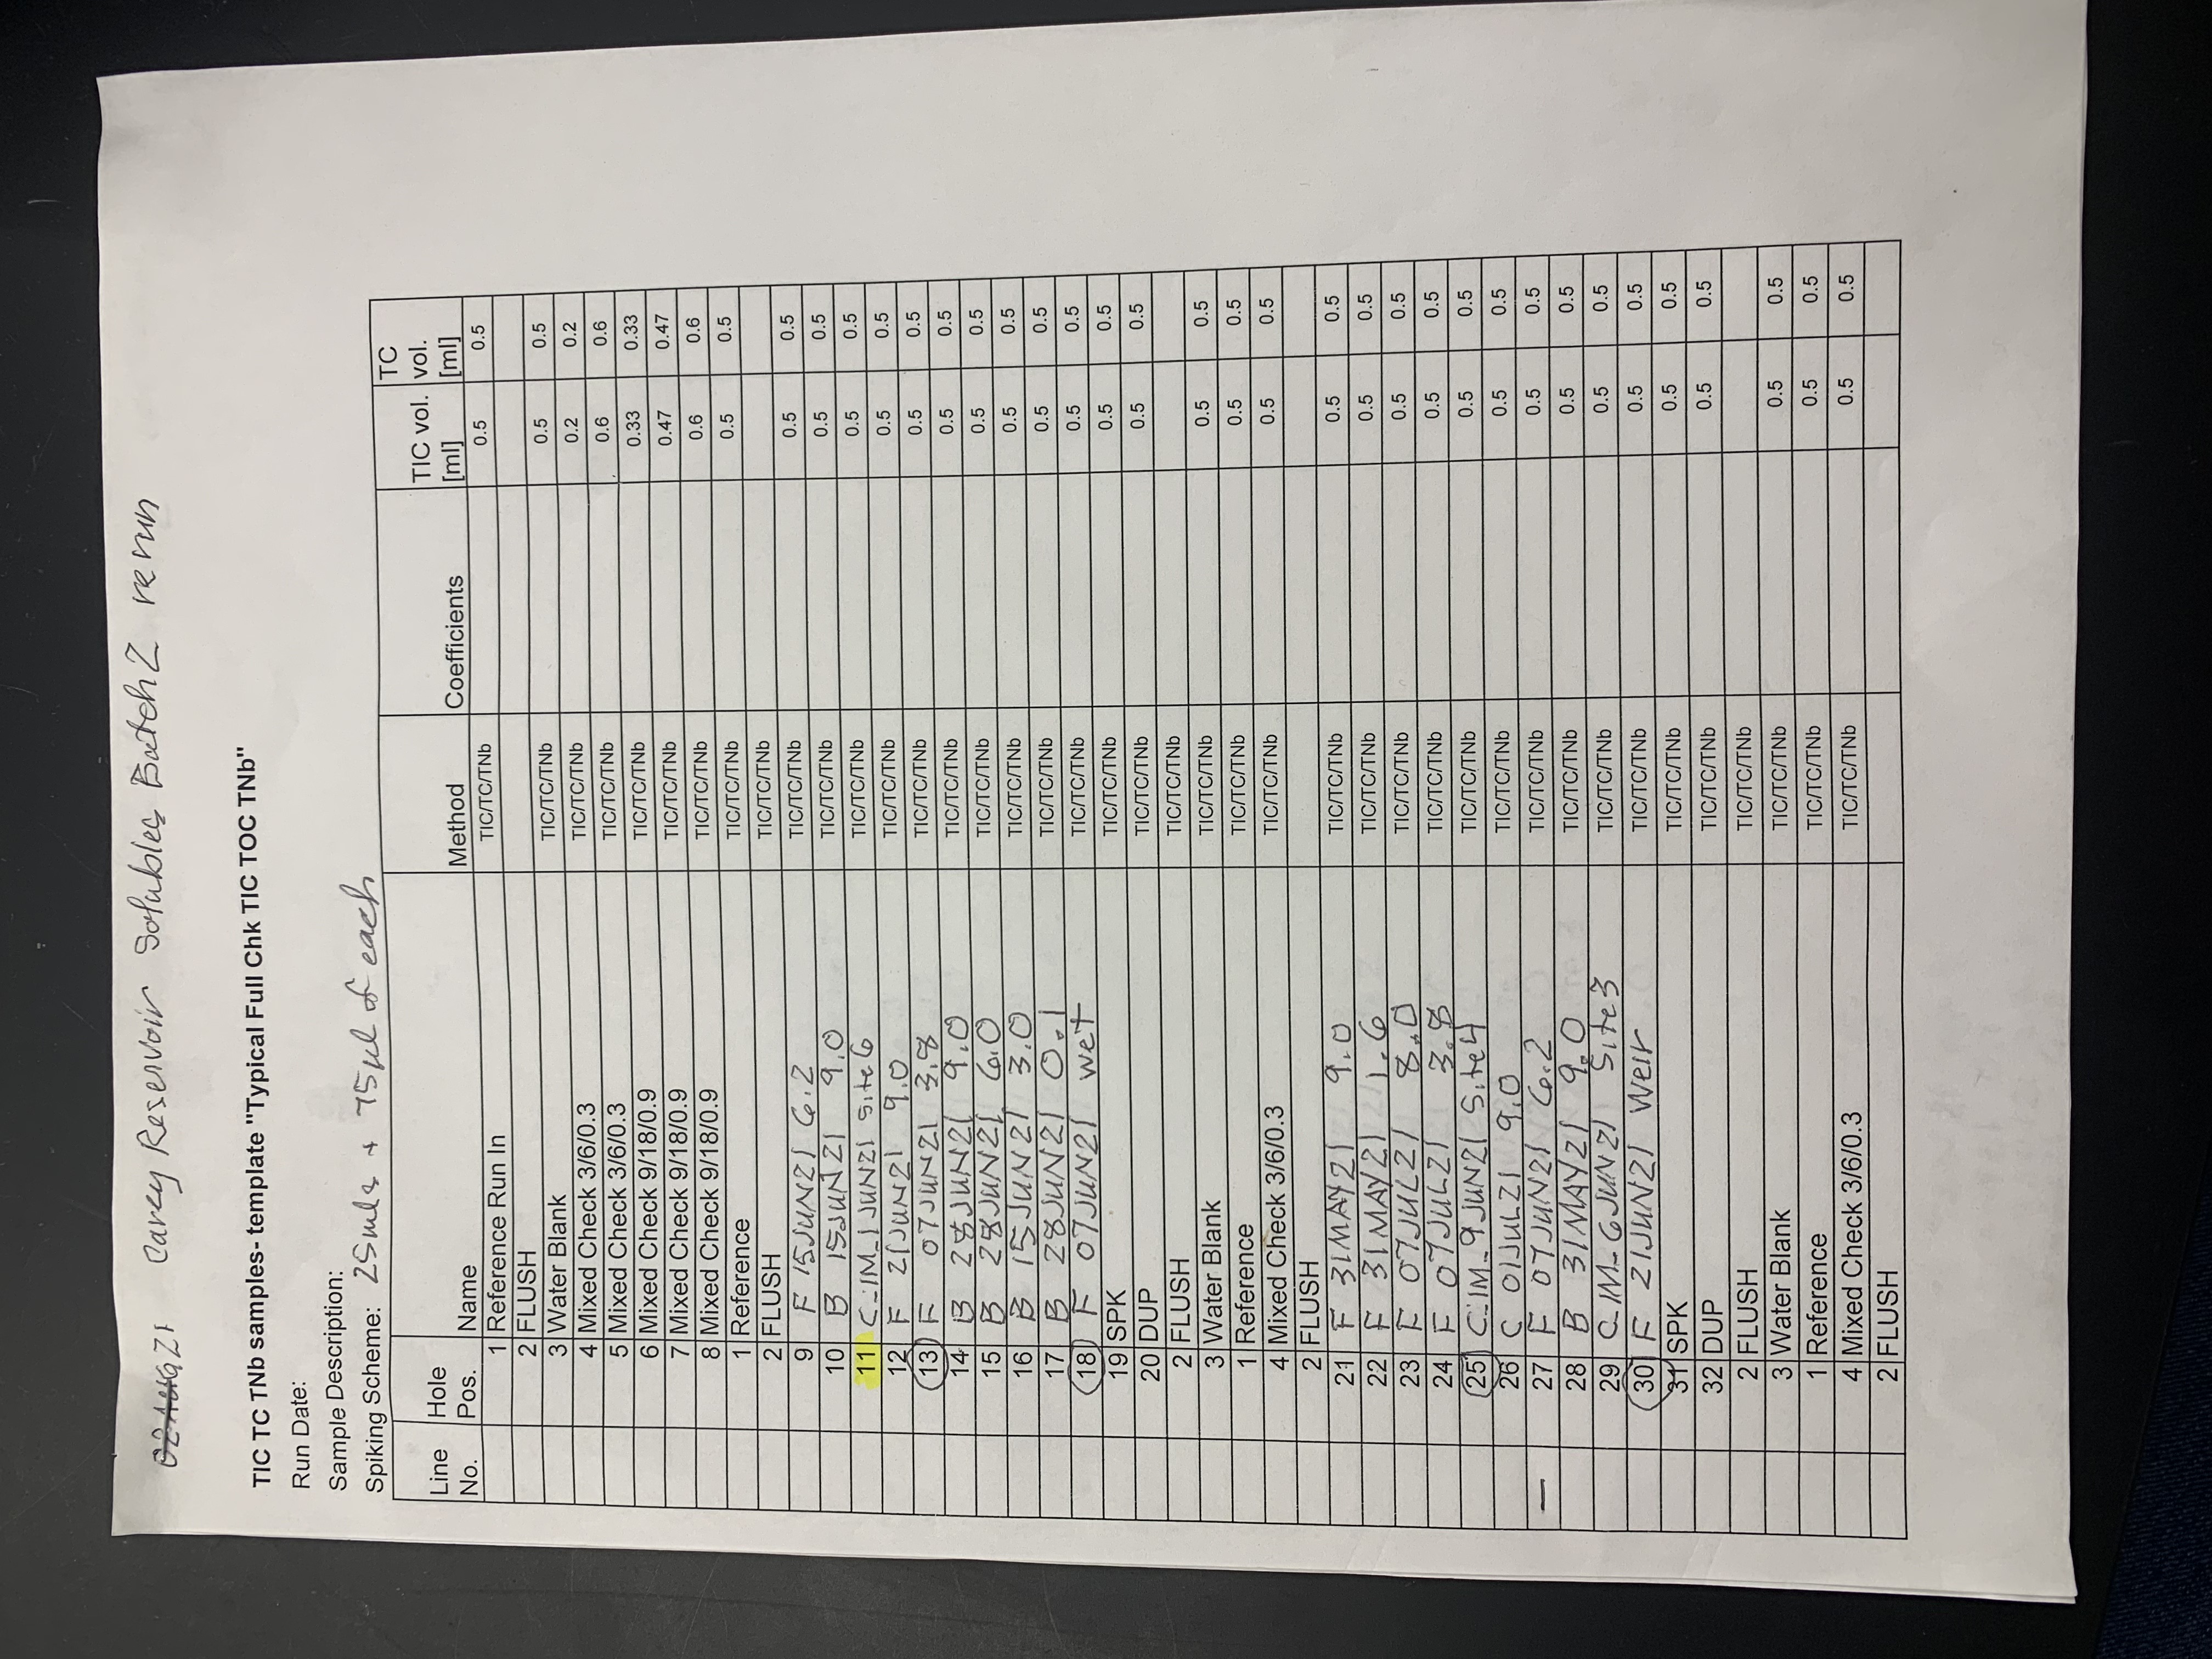 02AUG21 Carey Reservoir Solubles Batch 2 rerun
TIC TC TNb samples- template "Typical Full Chk TIC TOC TNb"
Run Date:
Sample Description:
Spiking Scheme: 25mls + 75µl of each
Line No. Hole Pos. Name Method Coefficients TIC vol. [ml] TC vol. [ml]
1 Reference Run In TIC/TC/TNb 0.5 0.5
2 FLUSH
3 Water Blank TIC/TC/TNb 0.5 0.5
4 Mixed Check 3/6/0.3 TIC/TC/TNb 0.2 0.2
5 Mixed Check 3/6/0.3 TIC/TC/TNb 0.6 0.6
6 Mixed Check 9/18/0.9 TIC/TC/TNb 0.33 0.33
7 Mixed Check 9/18/0.9 TIC/TC/TNb 0.47 0.47
8 Mixed Check 9/18/0.9 TIC/TC/TNb 0.6 0.6
1 Reference TIC/TC/TNb 0.5 0.5
2 FLUSH TIC/TC/TNb
9 F 15JUN21 6.2 TIC/TC/TNb 0.5 0.5
10 B 15JUN21 9.0 TIC/TC/TNb 0.5 0.5
11 C_IM_1JUN21 Site 6 TIC/TC/TNb 0.5 0.5
12 F 21JUN21 9.0 TIC/TC/TNb 0.5 0.5
13 F 07JUN21 3.8 TIC/TC/TNb 0.5 0.5
14 B 28JUN21 9.0 TIC/TC/TNb 0.5 0.5
15 B 28JUN21 6.0 TIC/TC/TNb 0.5 0.5
16 B 15JUN21 3.0 TIC/TC/TNb 0.5 0.5
17 B 28JUN21 0.1 TIC/TC/TNb 0.5 0.5
18 F 07JUN21 wet TIC/TC/TNb 0.5 0.5
19 SPK TIC/TC/TNb 0.5 0.5
20 DUP TIC/TC/TNb 0.5 0.5
2 FLUSH TIC/TC/TNb
3 Water Blank TIC/TC/TNb 0.5 0.5
1 Reference TIC/TC/TNb 0.5 0.5
4 Mixed Check 3/6/0.3 TIC/TC/TNb 0.5 0.5
2 FLUSH
21 F 31MAY21 9.0 TIC/TC/TNb 0.5 0.5
22 F 31MAY21 1.6 TIC/TC/TNb 0.5 0.5
23 F 07JUL21 8.0 TIC/TC/TNb 0.5 0.5
24 F 07JUL21 3.8 TIC/TC/TNb 0.5 0.5
25 C_IM_9JUN21 Site 4 TIC/TC/TNb 0.5 0.5
26 C 01JUL21 9.0 TIC/TC/TNb 0.5 0.5
— 27 F 07JUN21 6.2 TIC/TC/TNb 0.5 0.5
28 B 31MAY21 9.0 TIC/TC/TNb 0.5 0.5
29 C_IM_6JUN21 Site 3 TIC/TC/TNb 0.5 0.5
30 F 21JUN21 Weir TIC/TC/TNb 0.5 0.5
31 SPK TIC/TC/TNb 0.5 0.5
32 DUP TIC/TC/TNb 0.5 0.5
2 FLUSH TIC/TC/TNb
3 Water Blank TIC/TC/TNb 0.5 0.5
1 Reference TIC/TC/TNb 0.5 0.5
4 Mixed Check 3/6/0.3 TIC/TC/TNb 0.5 0.5
2 FLUSH